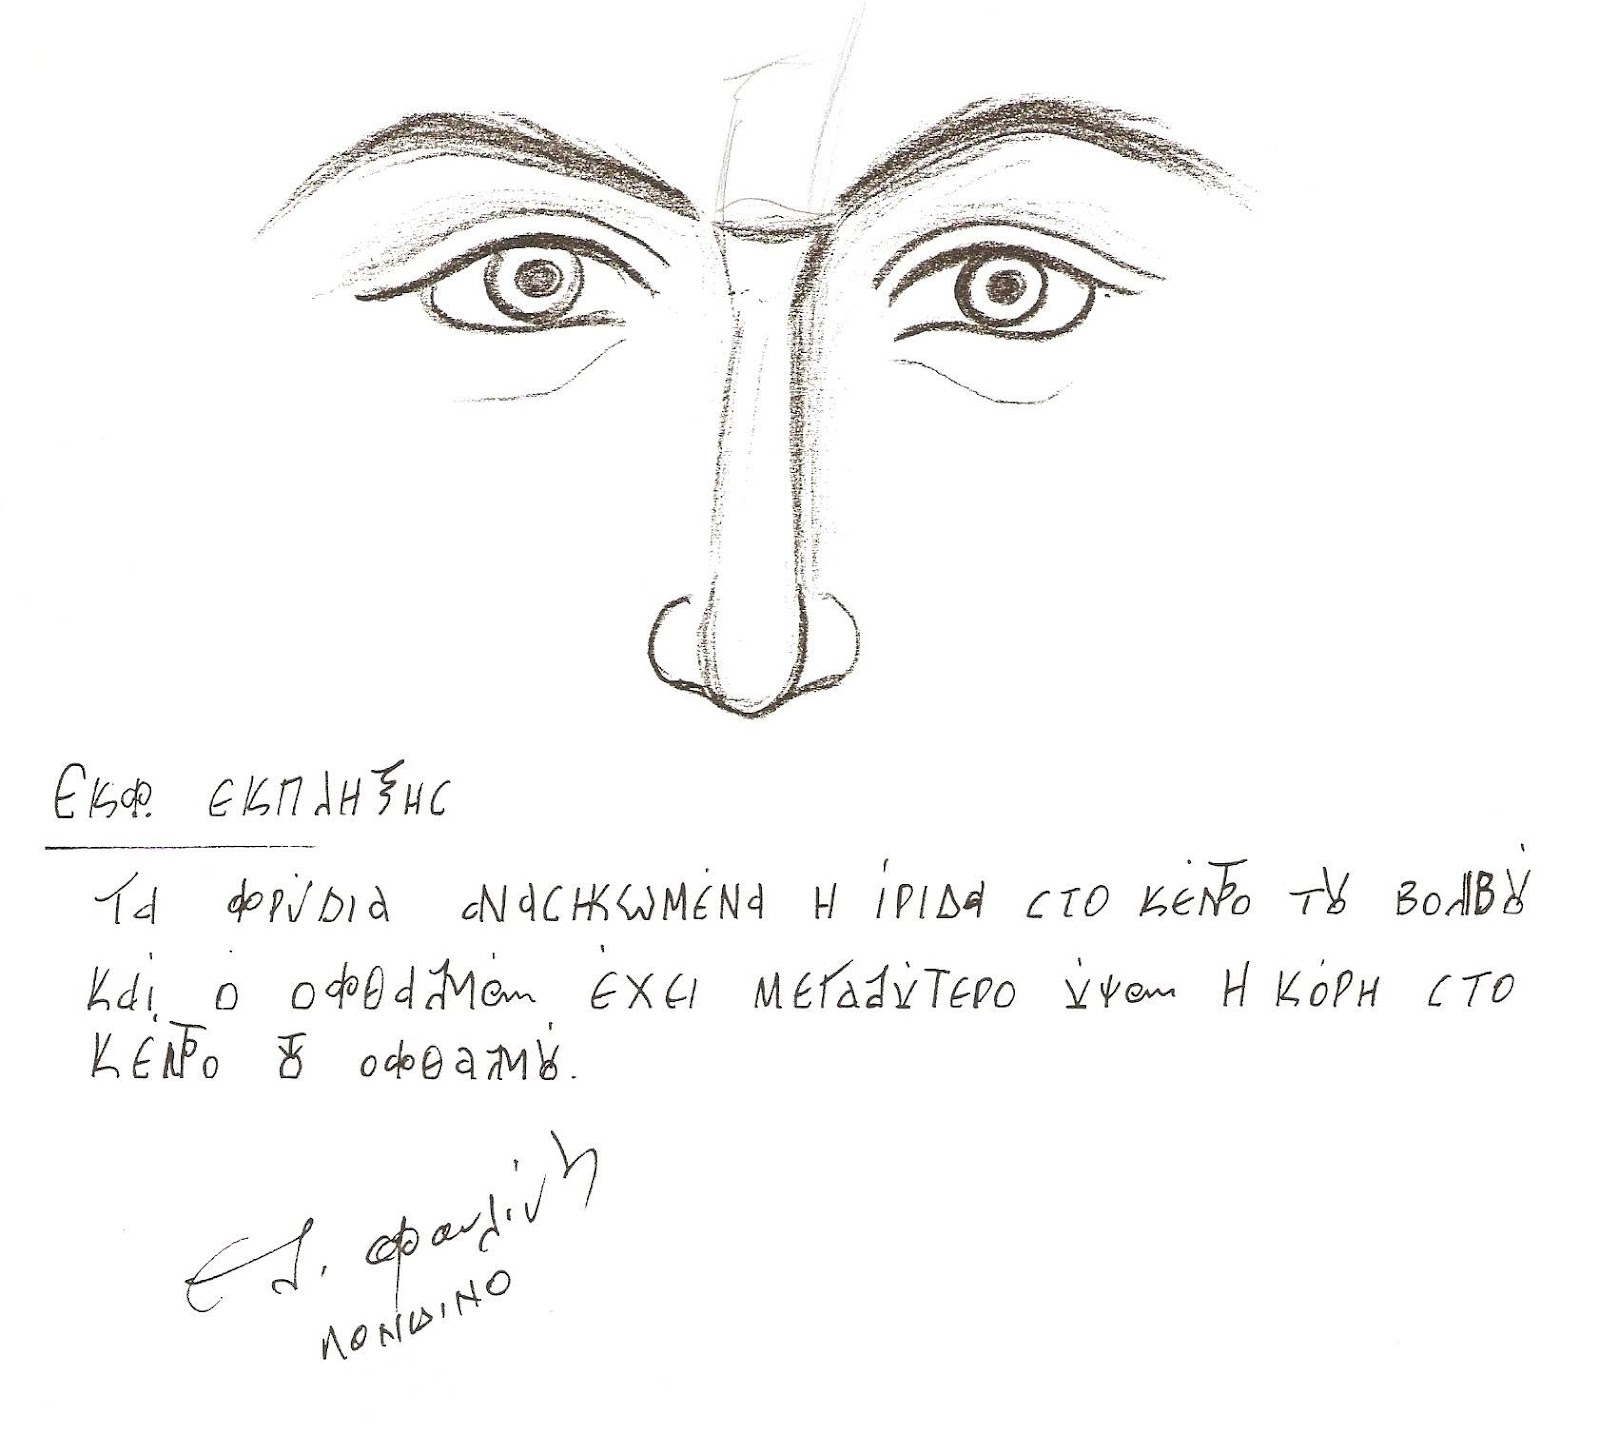 ΕΚΦ. ΕΚΠΛΗΞΗΣ
Τα φρύδια ανασηκωμένα η ίριδα στο κέντρο του βολβού
και ο οφθαλμός έχει μεγαλύτερο ύψος η κόρη στο
κέντρο του οφθαλμού.
Λονδίνο